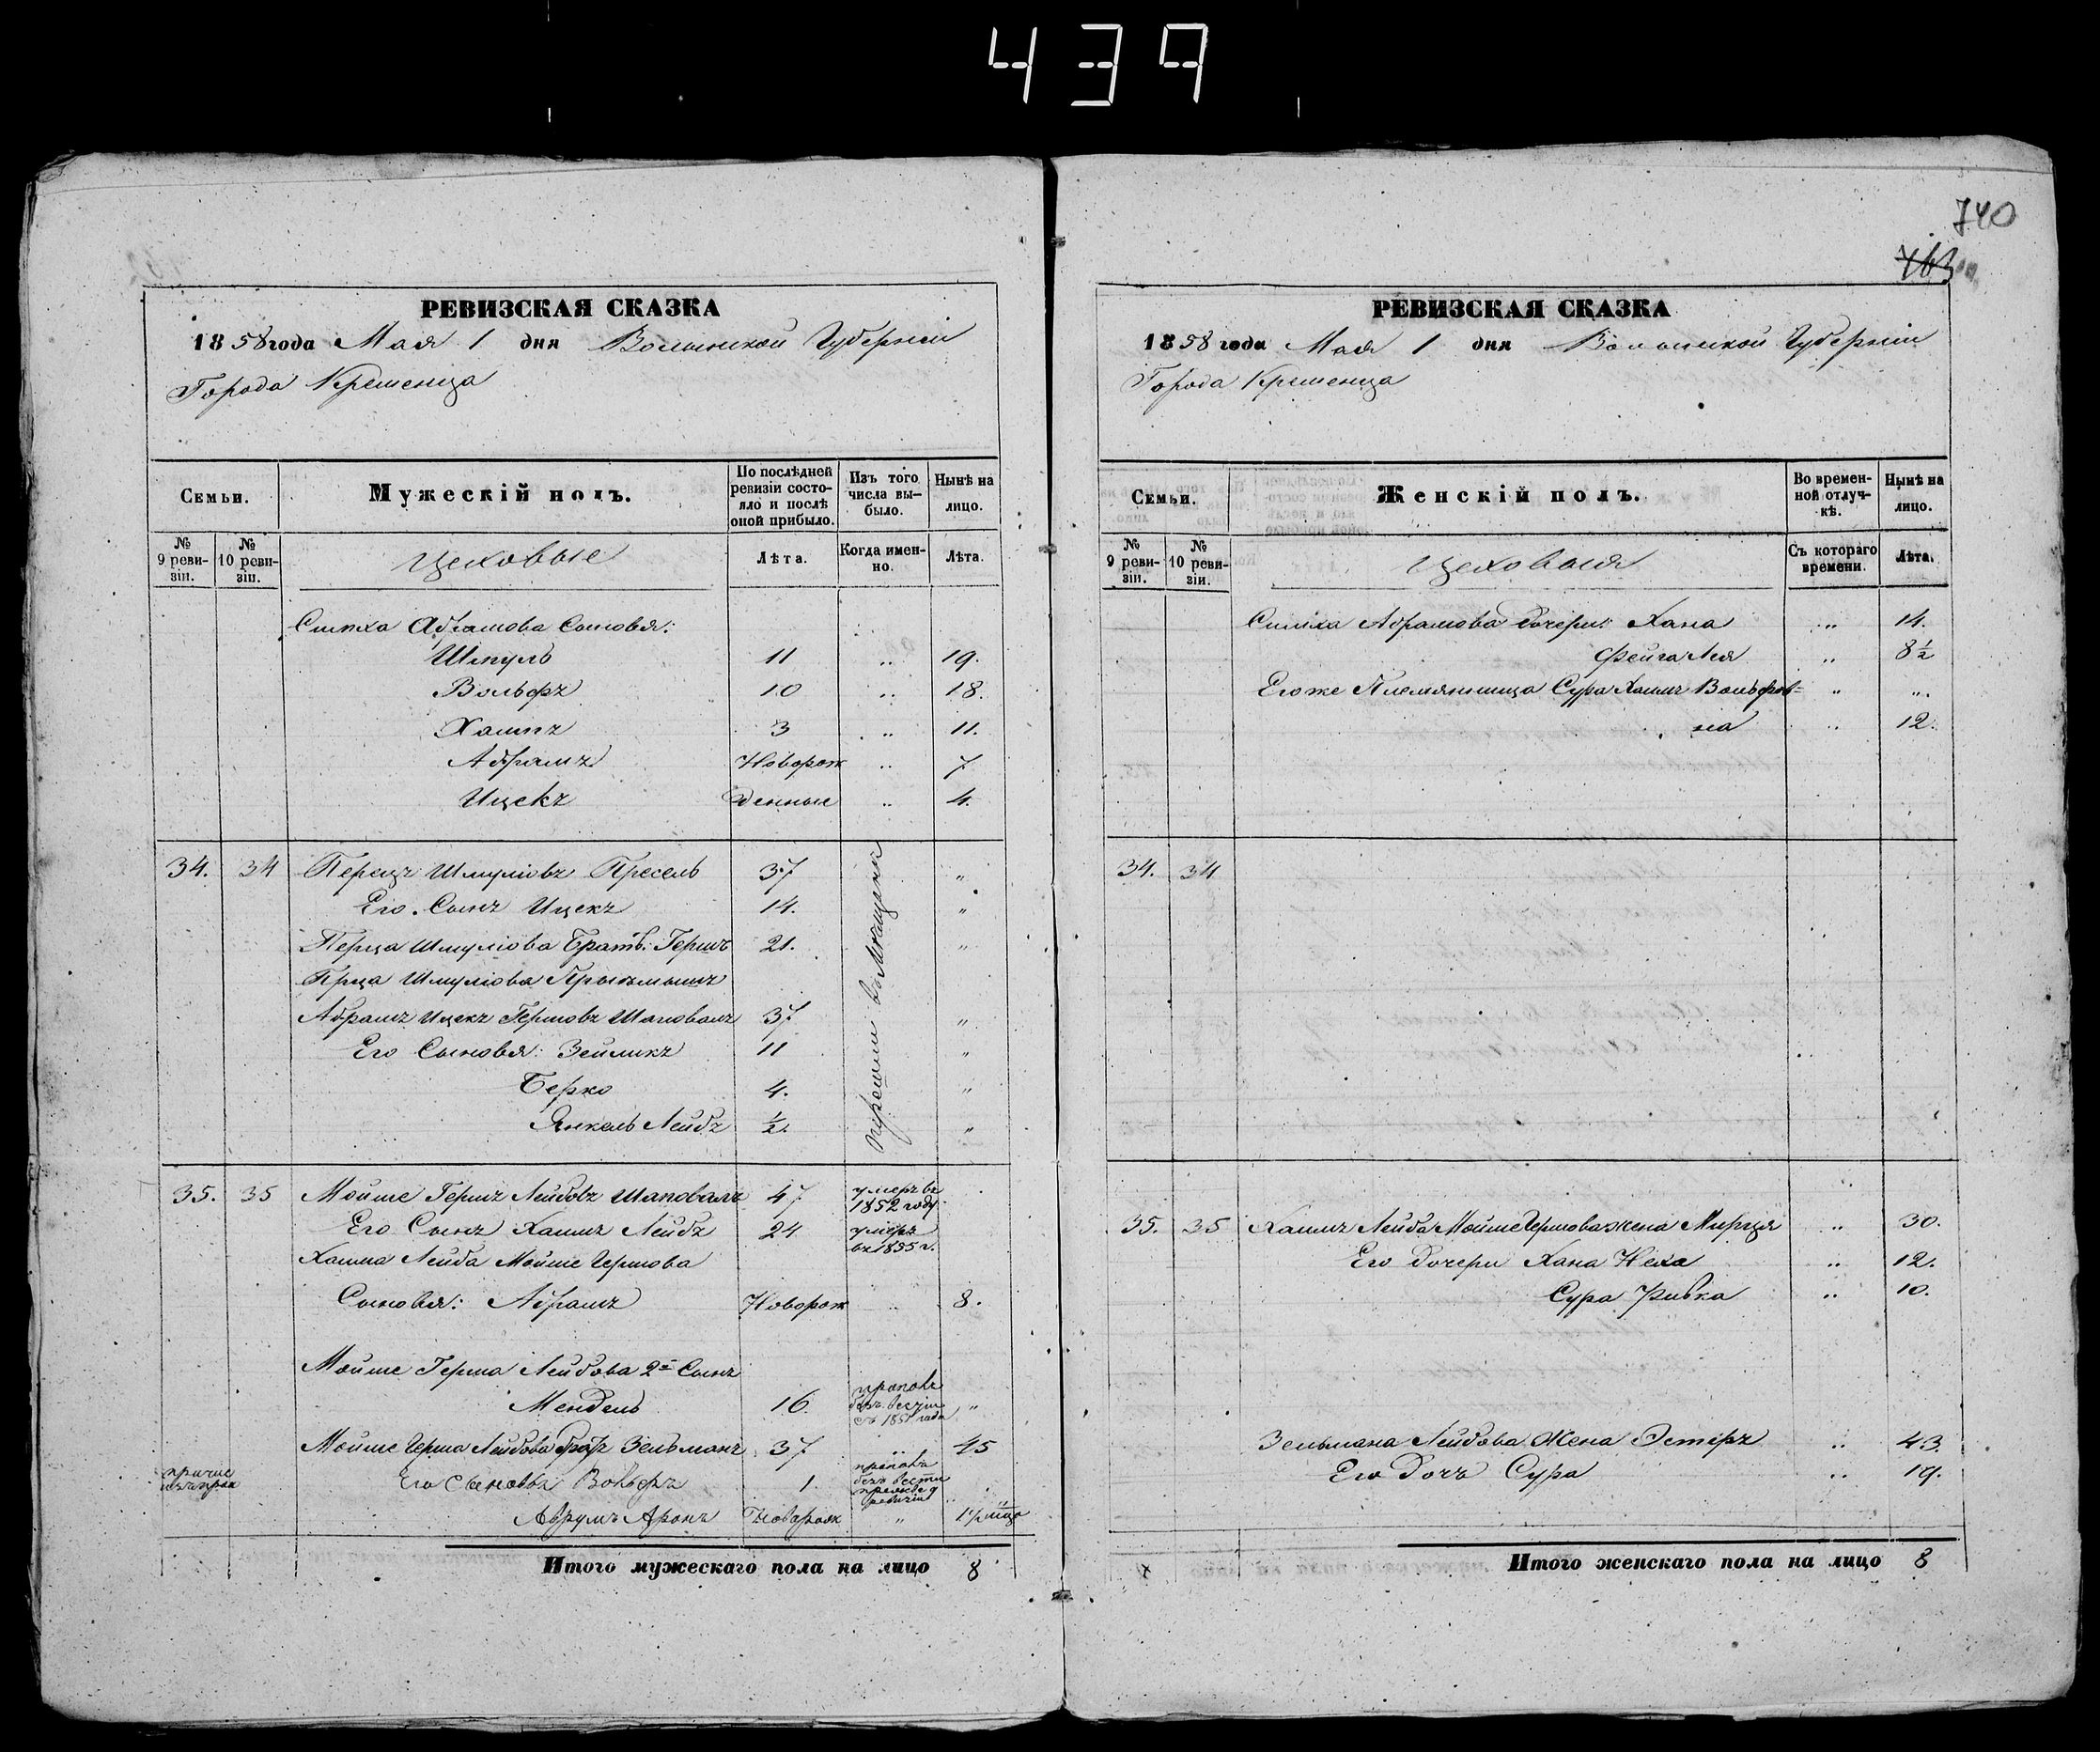 439
740
РЕВИЗСКАЯ СКАЗКА
1858 года Мая 1 дня Волынской Губерніи
Города Кременца
Семьи.
Мужескій полъ.
По послѣдней ревизіи состояло и послѣ оной прибыло.
Изъ того числа выбыло.
Нынѣ на лицо.
№ 9 ревизіи.
№ 10 ревизіи.
Цеховые
Лѣта.
Когда именно.
Лѣта.
Симха Абрамова Сыновья:
Шмуль 11 „ 19.
Вольфъ 10 „ 18.
Хаимъ 3 „ 11.
Абрамъ Новорож „ 7
Ицекъ денные „ 4.
34. 34 Перецъ Шмуліовъ Пресель 37 „
Его Сынъ Ицекъ 14. „
Перца Шмуліова Братъ: Гершъ 21. „
Прца Шмуліова
Абрамъ Ицекъ Гершовъ Шаповалъ 37 „
Его Сыновья: Зейликъ 11 „
Берко 4. „
Янкель Лейбъ ½. „
перешли въ Мещане
35. 35 Мойше Гершъ Лейбовъ Шаповалъ 47 умеръ въ 1852 году
Его Сынъ Хаимъ Лейбъ 24 умеръ въ 1855 г.
Хаима Лейба Мойше Гершова
Сыновья: Абрамъ Новорож „ 8.
Мойше Герша Лейбова 2й Сынъ
Мендель 16. пропалъ безъ вести съ 1851 года „
Мойше Герша Лейбова братъ Зельманъ 37 „ 45
Его Сыновья Вольфъ 1. пропалъ без вести
Аврумъ Аронъ Новорож „
Итого мужескаго пола на лицо 8
РЕВИЗСКАЯ СКАЗКА
1858 года Мая 1 дня Волынской Губерніи
Города Кременца
Семьи.
Женскій полъ.
Во временной отлучкѣ.
Нынѣ на лицо.
№ 9 ревизіи.
№ 10 ревизіи.
Цеховыя
Съ котораго времени.
Лѣта.
Симха Абрамова дочери: Хана „ 14.
Фейга Лея „ 8½
Его же Племянница Сура Хаимъ Вольфов= „ „
на „ 12.
34. 34
35. 35 Хаимъ Лейба Мойше Гершова жена Мирця „ 30.
Его Дочери Хана Неха „ 12.
Сура Ривка „ 10.
Зельмана Лейбова Жена Эстеръ „ 43.
Его Дочь Сура „ 19.
Итого женскаго пола на лицо 8